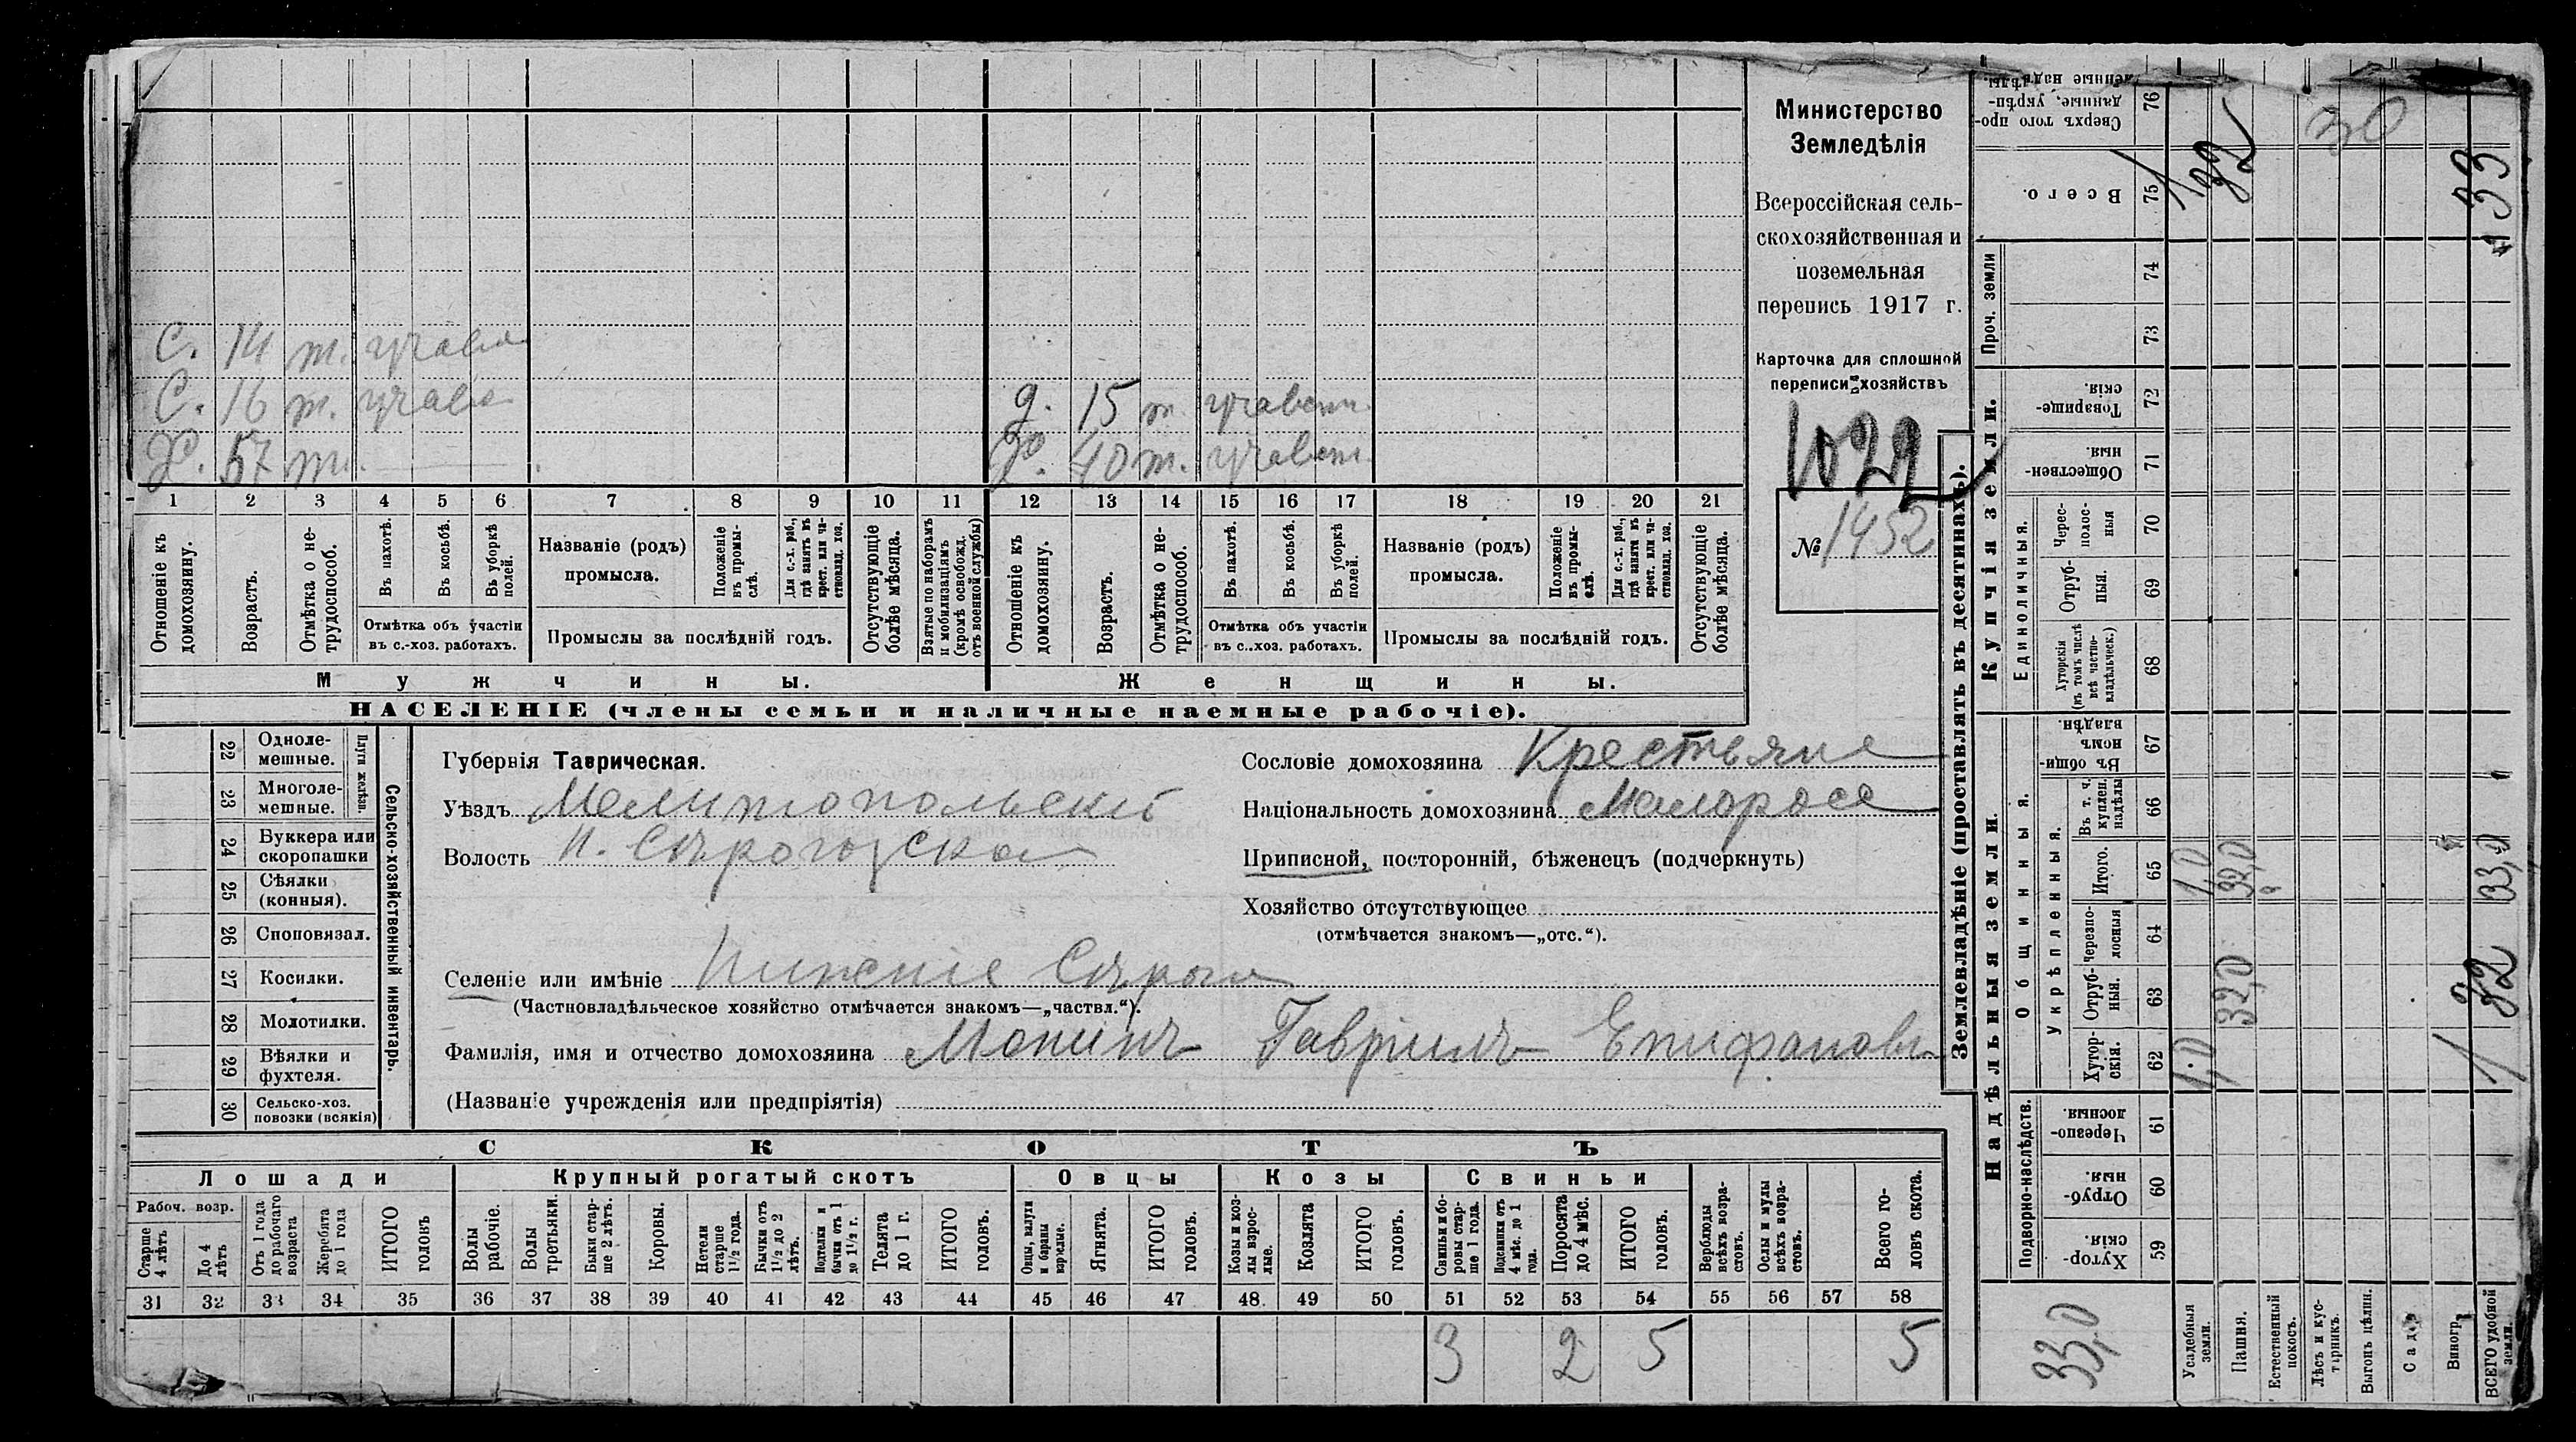 Министерство
Земледѣлія
Всероссійская сель-
скохозяйственная и
поземельная
перепись 1917 г.
Карточка для сплошной
переписи хозяйствъ
1029
№ 1452
С. 14 т.
С. 16 т.
Д. 57 т.
д. 15 т.
Д. 40 т.
1 2 3 4 5 6 7 8 9 10 11 12 13 14 15 16 17 18 19 20 21
Отношеніе къ домохозяину.
Возрастъ.
Отмѣтка о не-трудоспособ.
Въ пахотѣ.
Въ косьбѣ.
Въ уборкѣ полей.
Отмѣтка объ участіи
въ с.-хоз. работахъ.
Названіе (родъ)
промысла.
Положеніе въ промы-слѣ.
Для с.-х. раб., гдѣ занятъ въ крест. или ча-стновлад. хоз.
Промыслы за послѣдній годъ.
Отсутствующіе болѣе мѣсяца.
Взятые по наборамъ и мобилизаціямъ (кромѣ освобожд. отъ военной службы)
Отношеніе къ домохозяину.
Возрастъ.
Отмѣтка о не-трудоспособ.
Въ пахотѣ.
Въ косьбѣ.
Въ уборкѣ полей.
Отмѣтка объ участіи
въ с..хоз. работахъ.
Названіе (родъ)
промысла.
Положеніе въ промы-слѣ.
Для с.-х. раб., гдѣ занята въ крест. или ча-стновлад. хоз.
Промыслы за послѣдній годъ.
Отсутствующіе болѣе мѣсяца.
Мужчины.
Женщины.
НАСЕЛЕНІЕ (члены семьи и наличные наемные рабочіе).
Сельско-хозяйственный инвентарь.
Плуги желѣзн.
22 Одноле-мешные.
23 Многоле-мешные.
24 Буккера или скоропашки
25 Сѣялки (конныя).
26 Споповязал.
27 Косилки.
28 Молотилки.
29 Вѣялки и фухтеля.
30 Сельско-хоз. повозки (всякія)
Губернія Таврическая.
Уѣздъ Мелитопольскій
Волость Н. Сѣрогозская
Селеніе или имѣніе Нижніе Сѣрогозы
(Частновладѣльческое хозяйство отмѣчается знакомъ—„частвл.“).
Фамилія, имя и отчество домохозяина Монинъ Гавріилъ Епифановъ
(Названіе учрежденія или предпріятія)
Сословіе домохозяина Крестьяне
Національность домохозяина Малоросс
Приписной, посторонній, бѣженецъ (подчеркнуть)
Хозяйство отсутствующее
(отмѣчается знакомъ—„отс.“).
СКОТЪ
Лошади
Крупный рогатый скотъ
Овцы
Козы
Свиньи
Рабоч. возр.
Старше 4 лѣтъ
До 4 лѣтъ
Отъ 1 года до рабочаго возраста
Жеребята до 1 года
ИТОГО головъ
Волы рабочіе.
Волы третьяки.
Быки стар-ше 2 лѣтъ.
Коровы.
Нетели старше 1½ года.
Бычки отъ 1½ до 2 лѣтъ.
Подтелки и бычки отъ 1 до 1½ г.
Телята до 1 г.
ИТОГО головъ.
Овцы, валухи и бараны взрослые.
Ягнята.
ИТОГО головъ.
Козы и коз-лы взрос-лые.
Козлята
ИТОГО головъ.
Свиньи и бо-ровы стар-ше 1 года.
Подсвинки отъ 4 мѣс. до 1 года.
Поросята до 4 мѣс.
ИТОГО головъ.
Верблюды всѣхъ возра-стовъ.
Ослы и мулы всѣхъ возра-стовъ.
Всего го-ловъ скота.
31 32 33 34 35 36 37 38 39 40 41 42 43 44 45 46 47 48. 49 50 51 52 53 54 55 56 57 58
3 2 5 5
Землевладѣніе (проставлять въ десятинахъ).
Надѣльныя земли.
Купчія земли.
Проч. земли
Подворно-наслѣдств.
Общинныя.
Укрѣпленныя.
Единоличныя.
Хутор-скія. 59
Отруб-ныя. 60
Черезпо-лосныя. 61
Хутор-скія. 62
Отруб-ныя. 63
Черезпо-лосныя 64
Итого. 65
Въ т. ч. куплен. надѣлы 66
Въ общи-номъ владѣн. 67
Хуторскія (въ томъ числѣ всѣ частно-владѣльческ.) 68
Отруб-ныя. 69
Черес-полос-ныя 70
Обществен-ныя. 71
Товарище-скія. 72
73
74
Всего. 75
Сверхъ того про-данные, укрѣп-ленные надѣлы. 76
33,0
Усадебныя земли. 1,0 1,0 1
Пашня. 32,0 32,0 32
Естественный покосъ.
Лѣсъ и кус-тарникъ.
Выгонъ цѣлин.
Садъ
Виногр.
ВСЕГО удобной земли. 1 32 33,0 33
30